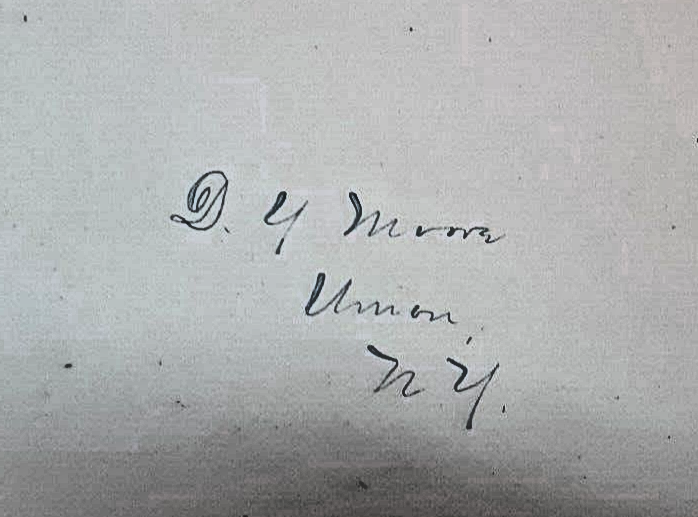 D. Y Moore
Union,
N Y.